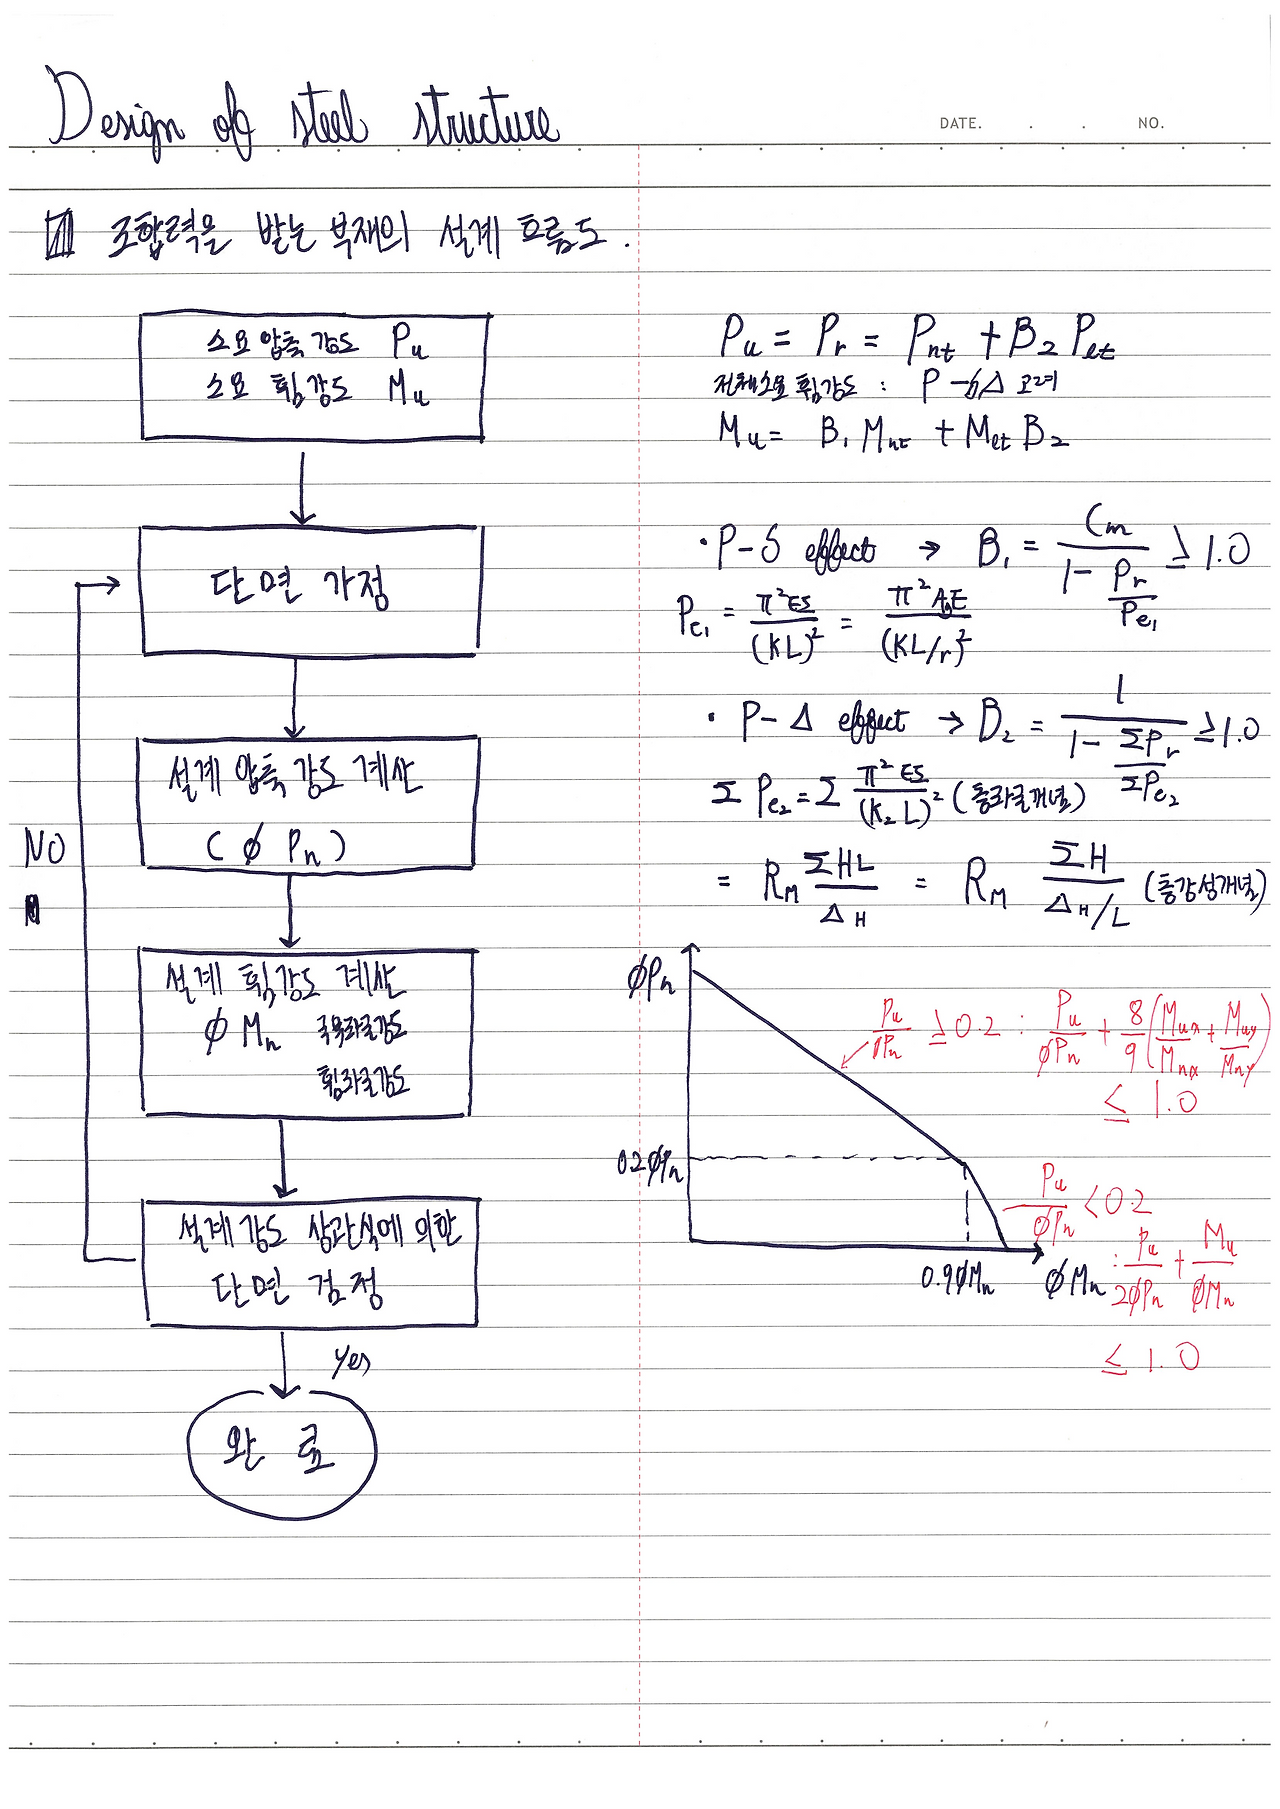 Design of steel structure
DATE. . . NO.
조합력을 받는 부재의 설계 흐름도.
소요 압축 강도 Pu
소요 휨 강도 Mu
단면 가정
설계 압축 강도 계산
( ø Pn )
설계 휨강도 계산
ø Mn 국부좌굴강도
휨좌굴강도
설계 강도 상관식에 의한
단면 검정
NO
yes
완료
Pu = Pr = Pnt + B2 Pet
전체소요 휨강도 : P-δΔ 고려
Mu = B1 Mnt + Met B2
· P-δ effect → B1 = Cm / (1 - Pr/Pe1) ≧ 1.0
Pe1 = π²EI / (KL)² = π²AgE / (KL/r)²
· P-Δ effect → B2 = 1 / (1 - ΣPr/ΣPe2) ≧ 1.0
Σ Pe2 = Σ π²EI / (K2 L)² (층좌굴개념)
= RM ΣHL / ΔH = RM ΣH / (ΔH/L) (층강성개념)
øPn
Pu/øPn ≧ 0.2 : Pu/øPn + 8/9 (Mux/Mnx + Muy/Mny)
≤ 1.0
0.2øPn
Pu/øPn < 0.2
0.9øMn øMn : Pu/2øPn + Mu/øMn
≤ 1.0